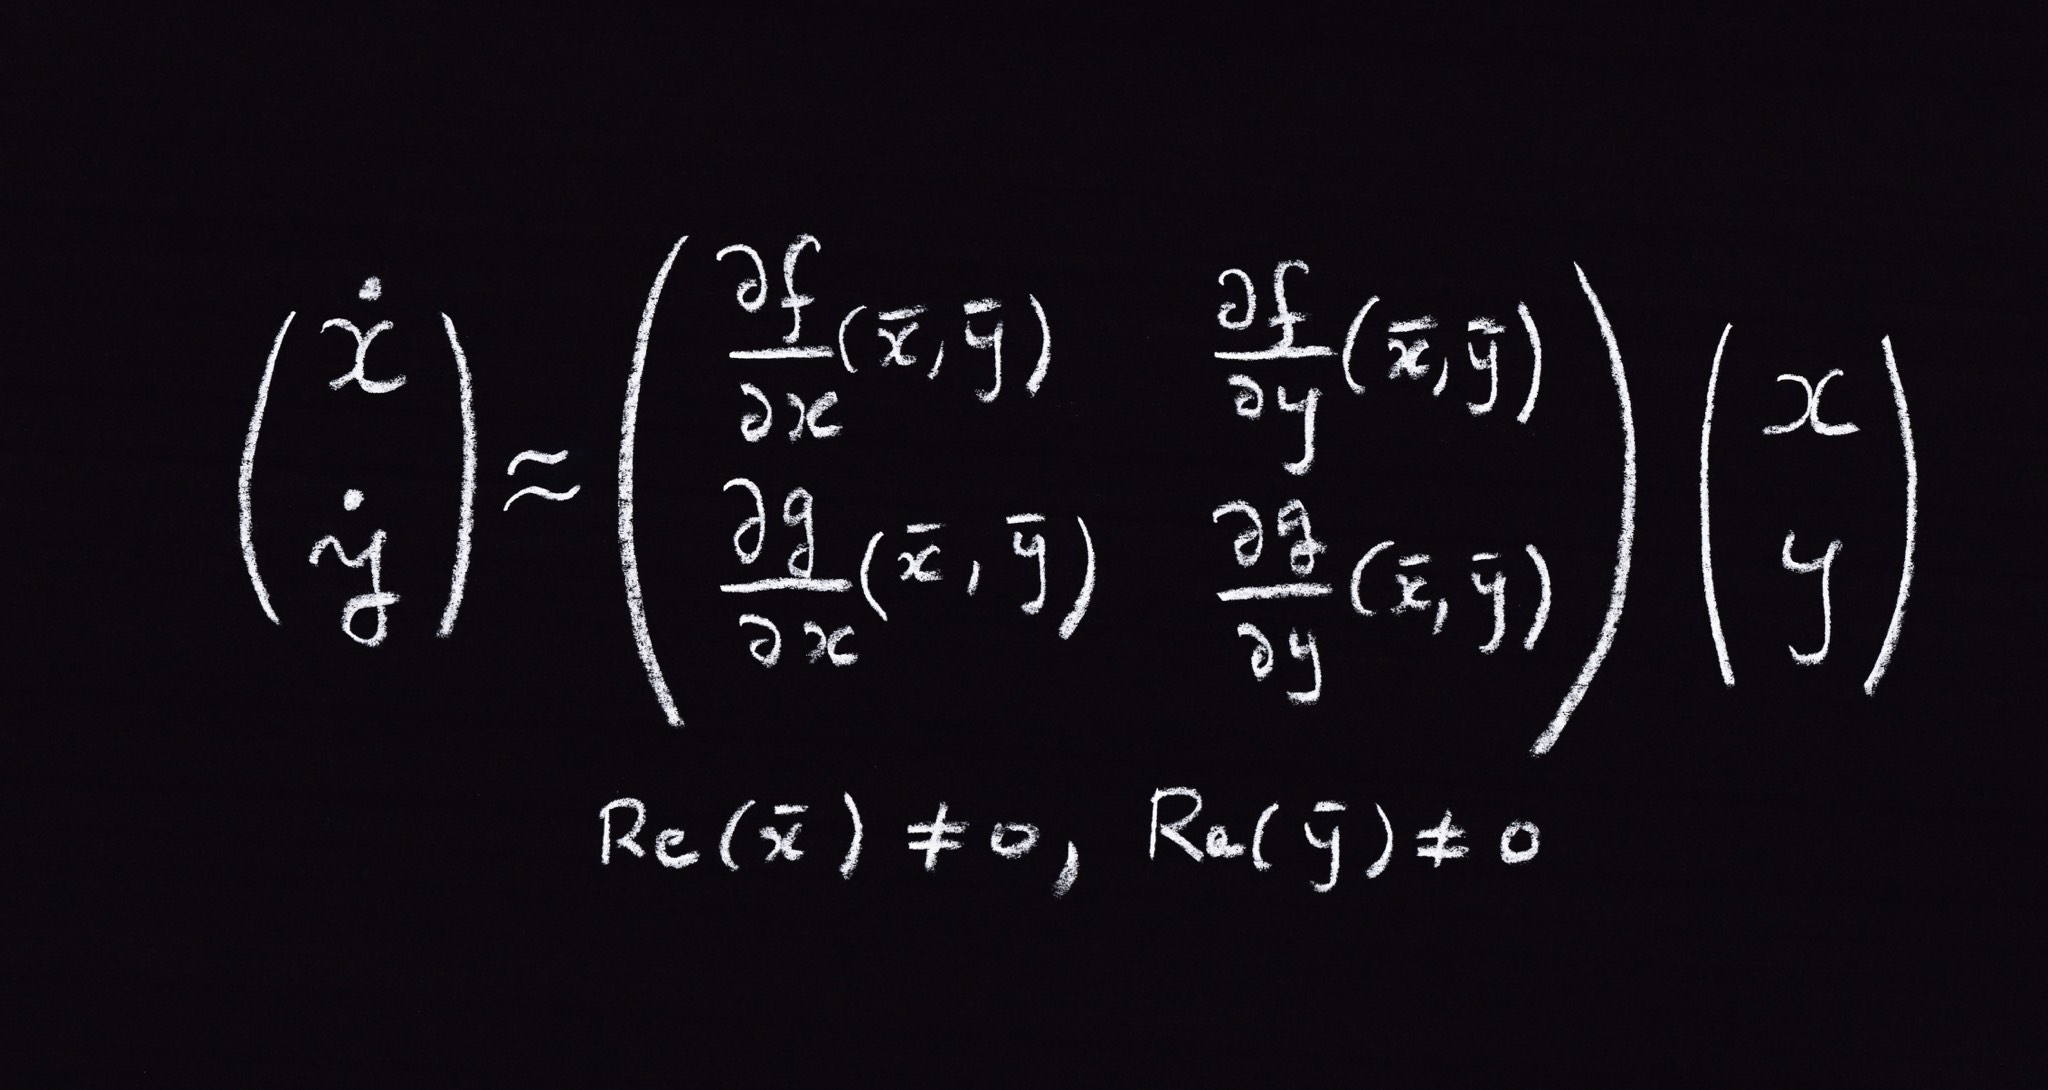 $$\begin{pmatrix} \dot{x} \\ \dot{y} \end{pmatrix} \approx \begin{pmatrix} \frac{\partial f}{\partial x}(\bar{x}, \bar{y}) & \frac{\partial f}{\partial y}(\bar{x}, \bar{y}) \\ \frac{\partial g}{\partial x}(\bar{x}, \bar{y}) & \frac{\partial g}{\partial y}(\bar{x}, \bar{y}) \end{pmatrix} \begin{pmatrix} x \\ y \end{pmatrix}$$
$$\text{Re}(\bar{x}) \neq 0, \text{Re}(\bar{y}) \neq 0$$